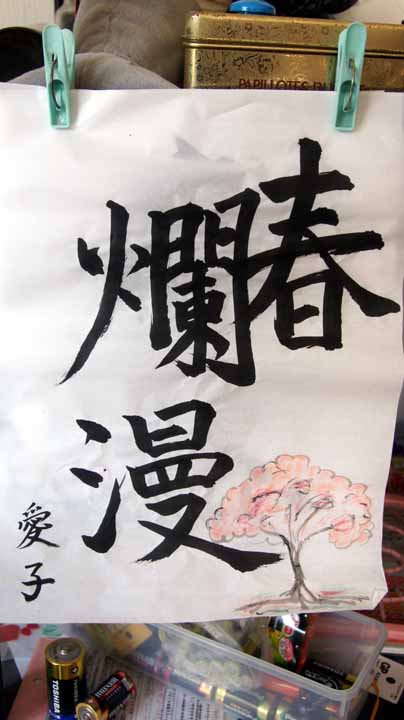 春
爛漫
愛子
PAPILLOTES DU
TOSHIBA